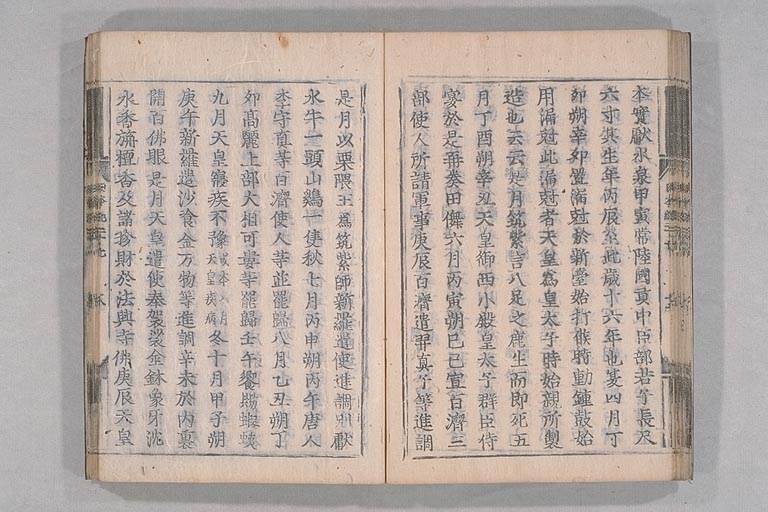 本實獻水泉甲寅常陸國貢中臣部若子長尺
六寸其生年丙辰至此歲十六年也夏四月丁
卯朔辛卯置漏尅於新臺始打候時動鍾皷始
用漏尅此漏尅者天皇爲皇太子時始親所製
造也云云是月筑紫言八足之鹿生而即死五
月丁酉朔辛丑天皇御西小殿皇太子群臣侍
宴於是再奏田儛六月丙寅朔己巳宣百濟三
部使人所請軍事庚辰百濟遣羿真子等進調
是月以栗隈王爲筑紫師新羅遣使進調別獻
水牛一頭山鷄一隻秋七月丙申朔丙午唐人
李守真等百濟使人等並罷歸八月乙丑朔丁
卯高麗上部大相可婁等罷歸壬午饗賜蝦蛦
九月天皇寢疾不豫或本八月天皇疾病冬十月甲子朔
庚午新羅遣沙飡金万物等進調辛未於內裏
開百佛眼是月天皇遣使奉袈裟金鉢象牙沈
水香旃檀香及諸珍財於法興寺佛庚辰天皇